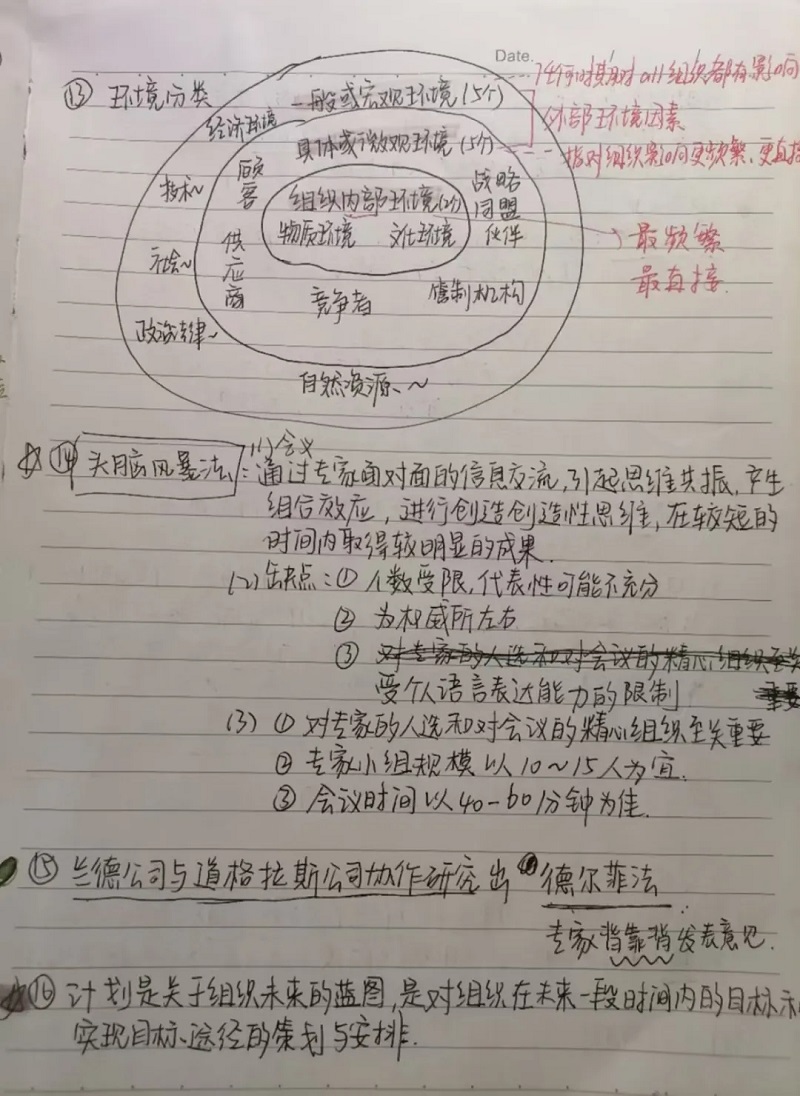 Date.
⑬ 环境分类
一般或宏观环境(5个)
任何时期对all组织都有影响
外部环境因素
经济环境
具体或微观环境(5个)
指对组织影响更频繁、更直接
技术~
顾客
组织内部环境(2个)
战略同盟伙伴
物质环境 文化环境
最频繁
最直接.
社会~
供应商
竞争者
管制机构
政治法律~
自然资源~
☆ ⑭ 头脑风暴法: (1)会议
通过专家面对面的信息交流,引起思维共振,产生
组合效应,进行创造创造性思维,在较短的
时间内取得较明显的成果.
(2)缺点:① 人数受限,代表性可能不充分
② 为权威所左右
③ 对专家的人选和对会议的精心组织至关
重要
受个人语言表达能力的限制
(3) ① 对专家的人选和对会议的精心组织至关重要
② 专家小组规模以10~15人为宜.
③ 会议时间以40-60分钟为佳.
⑮ 兰德公司与道格拉斯公司协作研究出 德尔菲法
专家背靠背发表意见.
☆ ⑯ 计划是关于组织未来的蓝图,是对组织在未来一段时间内的目标和
实现目标、途径的策划与安排.